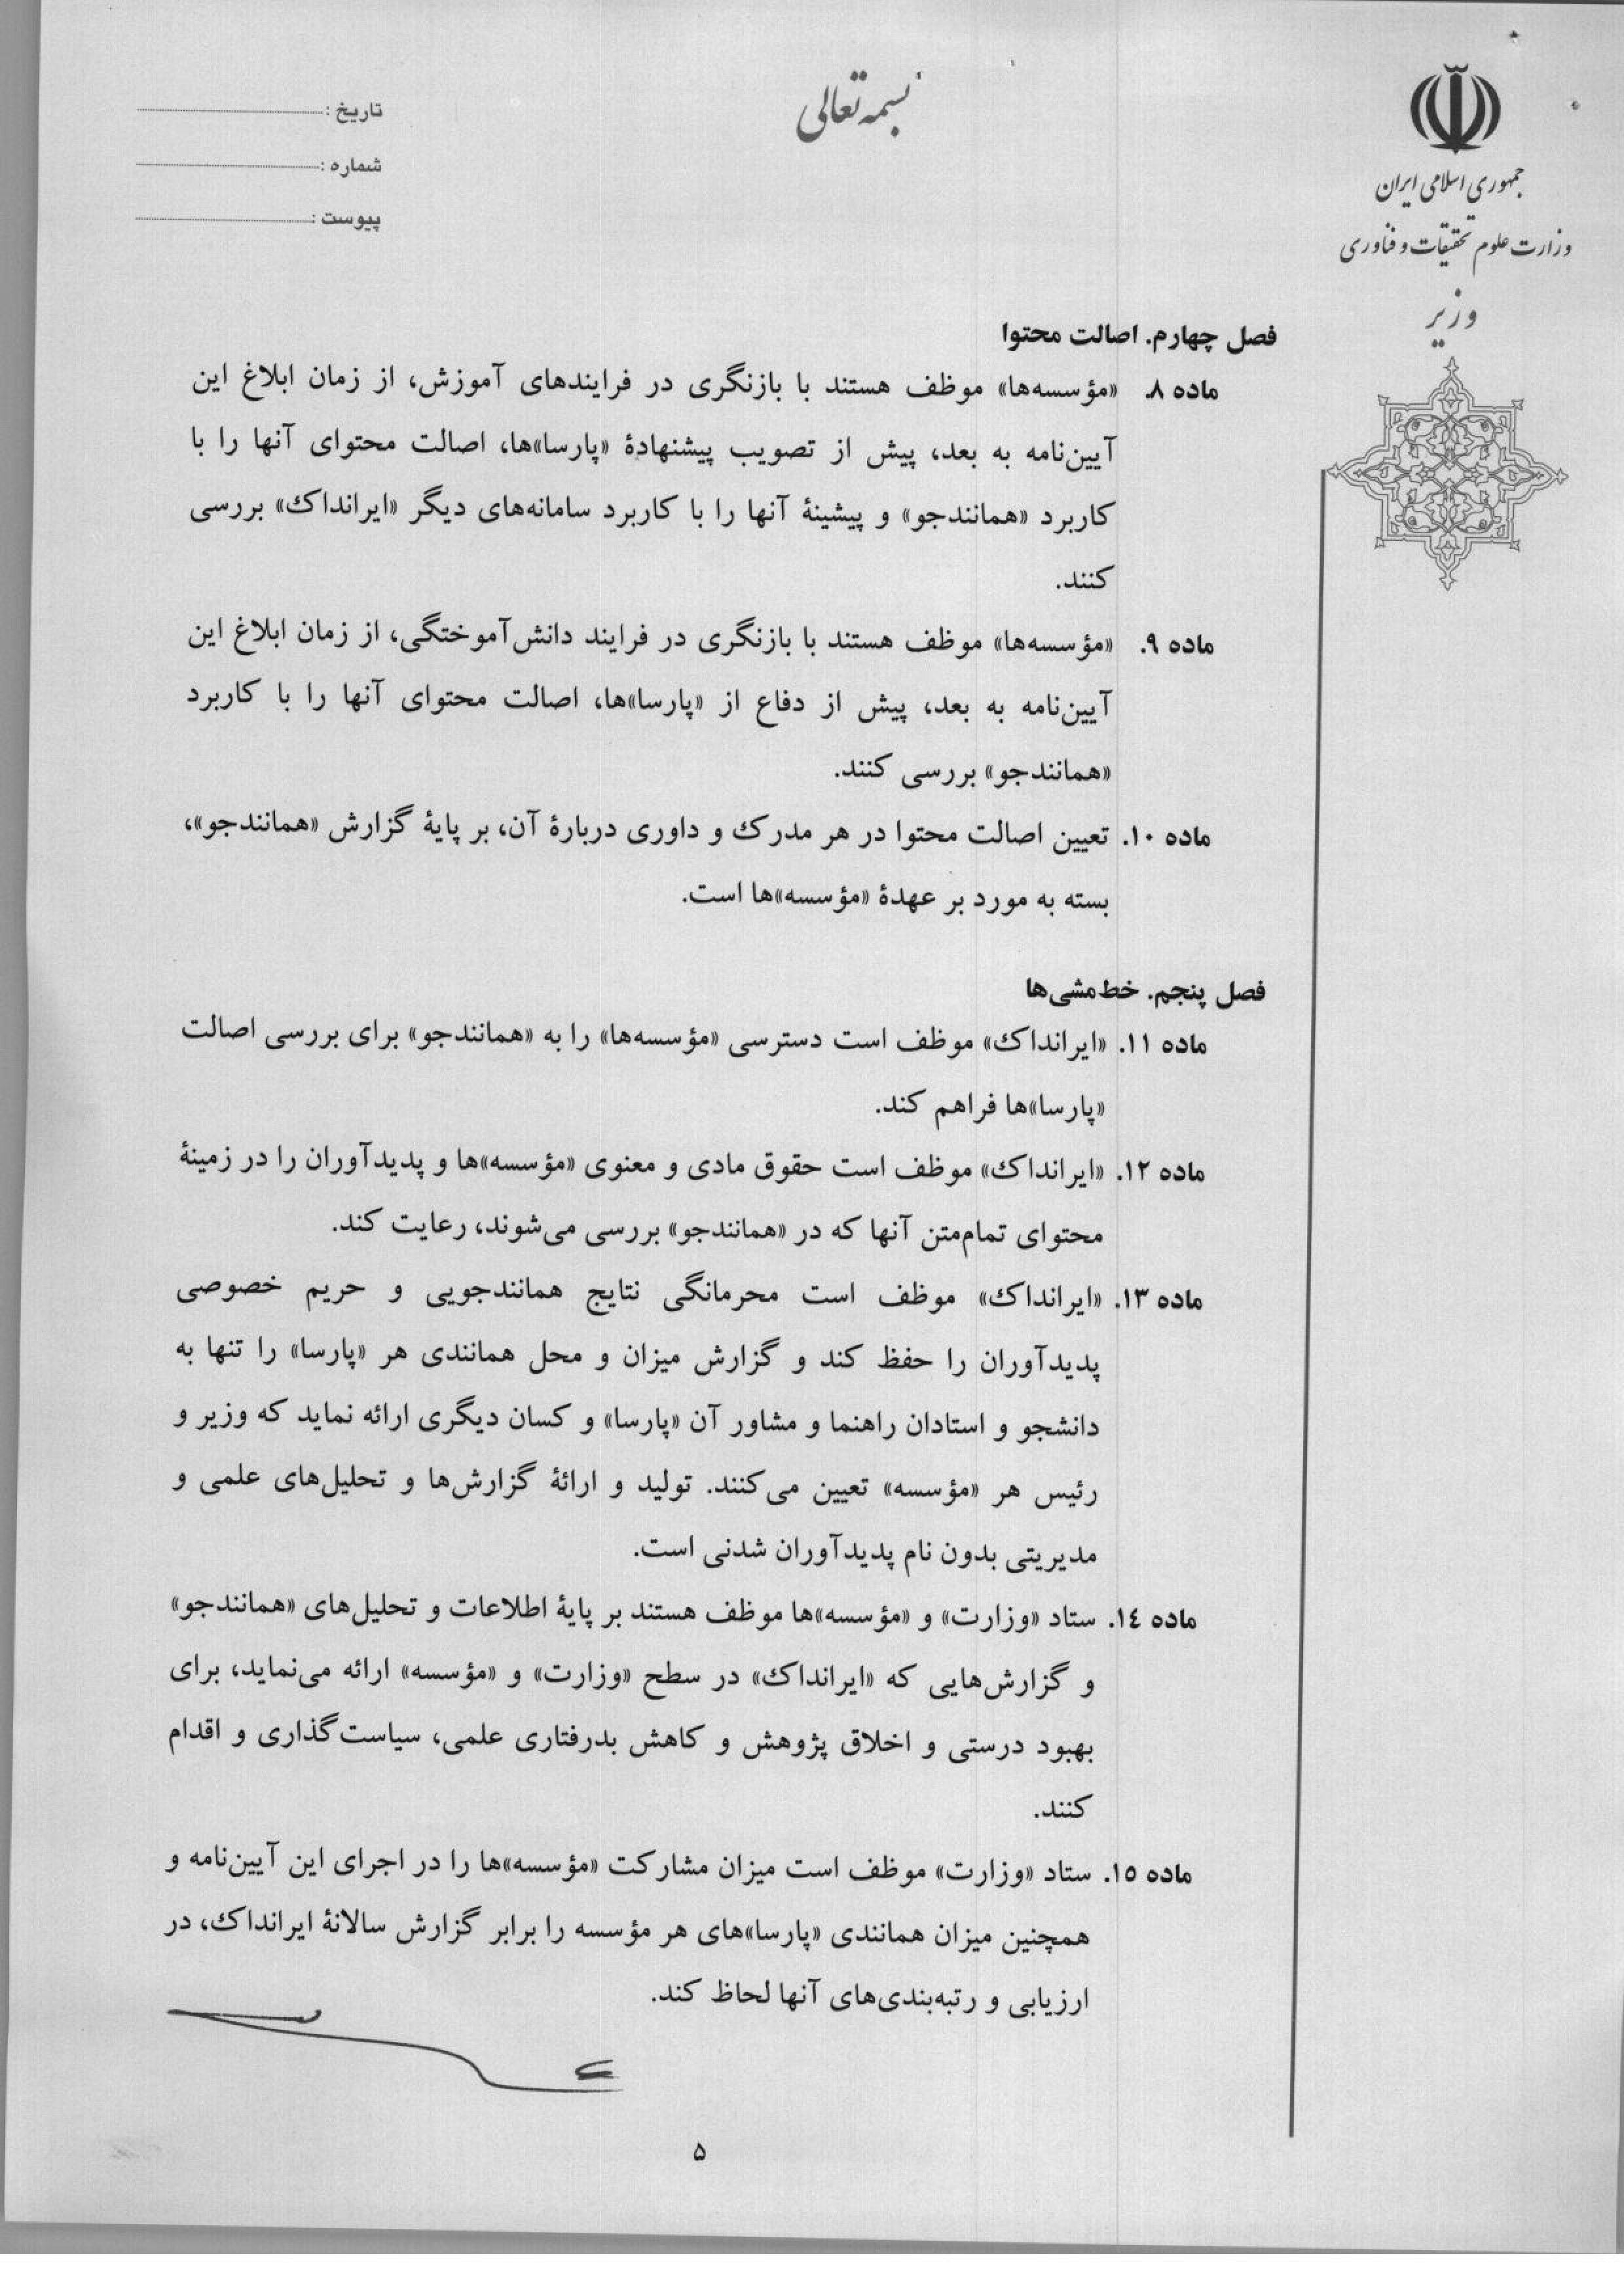 بسمه تعالی
جمهوری اسلامی ایران
وزارت علوم تحقیقات و فناوری
وزیر
تاریخ :
شماره :
پیوست :
فصل چهارم. اصالت محتوا
ماده ۸. «مؤسسه‌ها» موظف هستند با بازنگری در فرایندهای آموزش، از زمان ابلاغ این
آیین‌نامه به بعد، پیش از تصویب پیشنهادۀ «پارسا»ها، اصالت محتوای آنها را با
کاربرد «همانندجو» و پیشینۀ آنها را با کاربرد سامانه‌های دیگر «ایرانداک» بررسی
کنند.
ماده ۹. «مؤسسه‌ها» موظف هستند با بازنگری در فرایند دانش‌آموختگی، از زمان ابلاغ این
آیین‌نامه به بعد، پیش از دفاع از «پارسا»ها، اصالت محتوای آنها را با کاربرد
«همانندجو» بررسی کنند.
ماده ۱۰. تعیین اصالت محتوا در هر مدرک و داوری دربارۀ آن، بر پایۀ گزارش «همانندجو»،
بسته به مورد بر عهدۀ «مؤسسه»ها است.
فصل پنجم. خط‌مشی‌ها
ماده ۱۱. «ایرانداک» موظف است دسترسی «مؤسسه‌ها» را به «همانندجو» برای بررسی اصالت
«پارسا»ها فراهم کند.
ماده ۱۲. «ایرانداک» موظف است حقوق مادی و معنوی «مؤسسه»ها و پدیدآوران را در زمینۀ
محتوای تمام‌متن آنها که در «همانندجو» بررسی می‌شوند، رعایت کند.
ماده ۱۳. «ایرانداک» موظف است محرمانگی نتایج همانندجویی و حریم خصوصی
پدیدآوران را حفظ کند و گزارش میزان و محل همانندی هر «پارسا» را تنها به
دانشجو و استادان راهنما و مشاور آن «پارسا» و کسان دیگری ارائه نماید که وزیر و
رئیس هر «مؤسسه» تعیین می‌کنند. تولید و ارائۀ گزارش‌ها و تحلیل‌های علمی و
مدیریتی بدون نام پدیدآوران شدنی است.
ماده ۱٤. ستاد «وزارت» و «مؤسسه»ها موظف هستند بر پایۀ اطلاعات و تحلیل‌های «همانندجو»
و گزارش‌هایی که «ایرانداک» در سطح «وزارت» و «مؤسسه» ارائه می‌نماید، برای
بهبود درستی و اخلاق پژوهش و کاهش بدرفتاری علمی، سیاست‌گذاری و اقدام
کنند.
ماده ۱۵. ستاد «وزارت» موظف است میزان مشارکت «مؤسسه»ها را در اجرای این آیین‌نامه و
همچنین میزان همانندی «پارسا»های هر مؤسسه را برابر گزارش سالانۀ ایرانداک، در
ارزیابی و رتبه‌بندی‌های آنها لحاظ کند.
۵